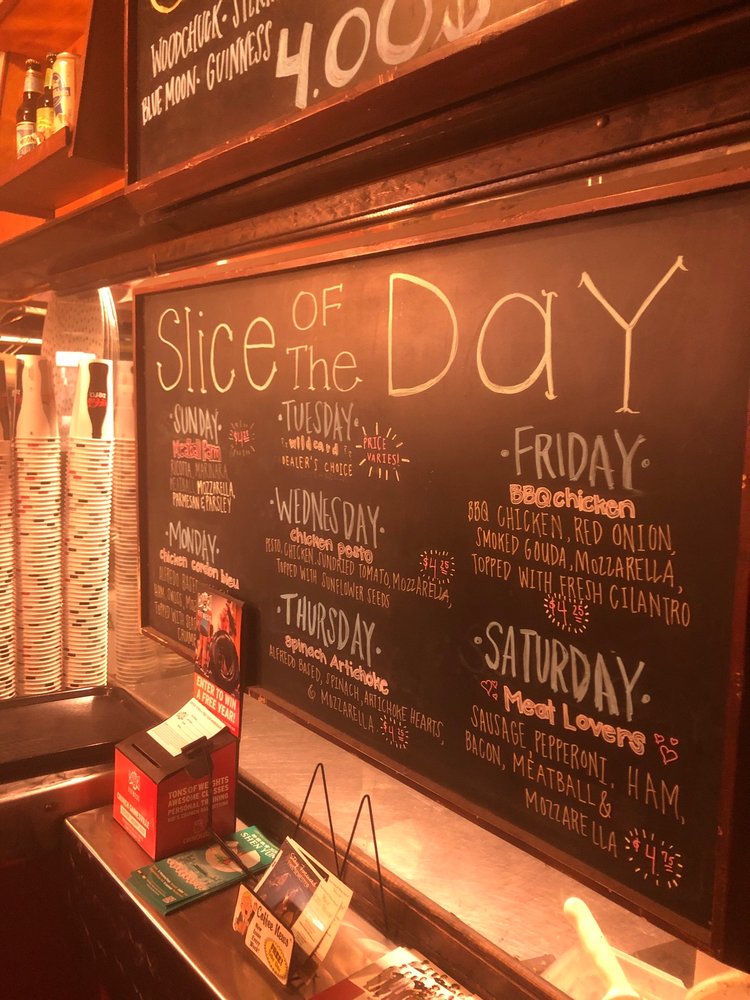 WOODCHUCK · STELLA
BLUE MOON · GUINNESS
4.00
Slice OF The Day
· SUNDAY ·
Meatball Parm
RICOTTA, MARINARA,
MEATBALL, MOZZARELLA,
PARMESAN & PARSLEY
· MONDAY ·
chicken cordon bleu
ALFREDO
HAM, SWISS,
TOPPED WITH
· TUESDAY ·
wild card
DEALER'S CHOICE
PRICE
VARIES!
WEDNESDAY ·
chicken pesto
PESTO, CHICKEN, SUNDRIED TOMATO, MOZZARELLA,
TOPPED WITH SUNFLOWER SEEDS
$4.25
THURSDAY ·
Spinach Artichoke
ALFREDO BASED, SPINACH, ARTICHOKE HEARTS,
& MOZZARELLA
$4.25
· FRIDAY ·
BBQ chicken
BBQ CHICKEN, RED ONION,
SMOKED GOUDA, MOZZARELLA,
TOPPED WITH FRESH CILANTRO
$4.25
· SATURDAY ·
Meat Lovers
SAUSAGE, PEPPERONI, HAM,
BACON, MEATBALL &
MOZZARELLA
$4.75
ENTER TO WIN
A FREE YEAR!
TONS OF WEIGHTS
AWESOME CLASSES
PERSONAL TRAINING
SHEN YUN
Coffee News